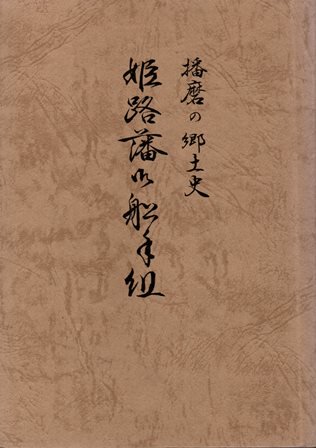 播磨の郷土史
姫路藩御船手組